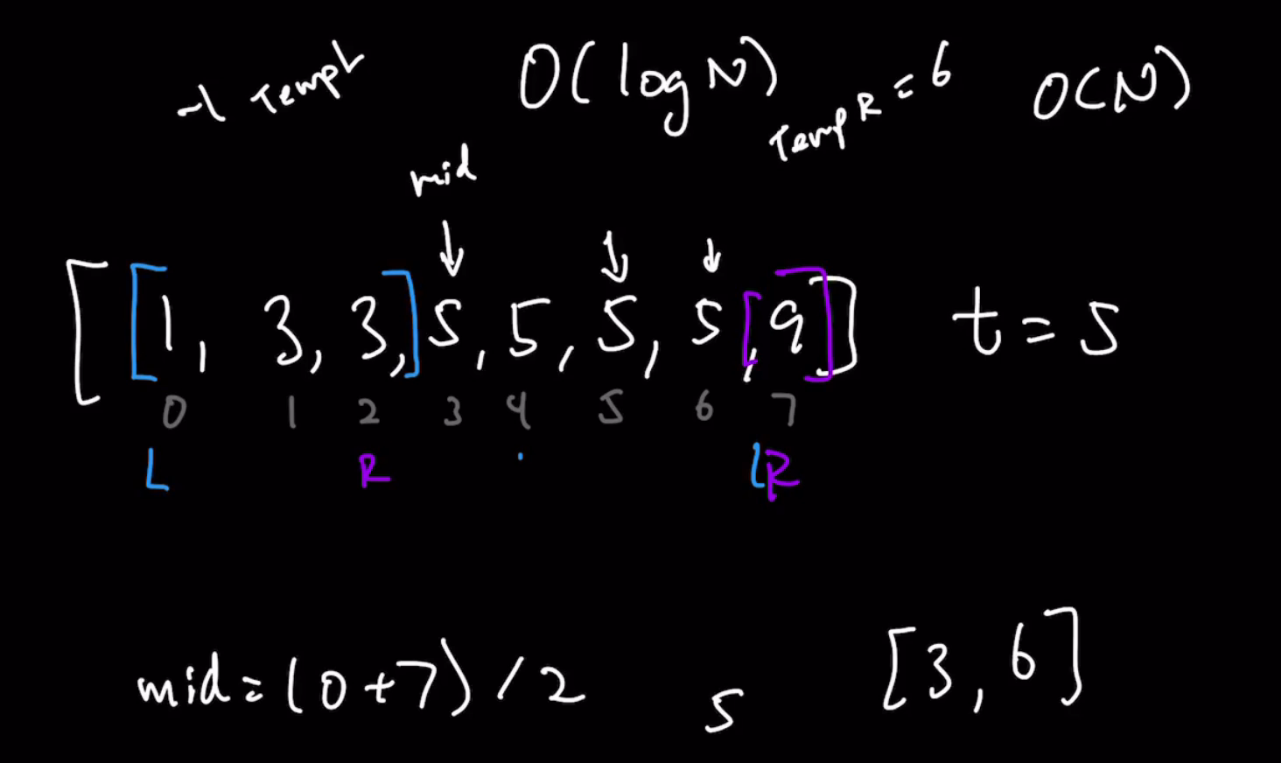 -1 TempL O(log N) TempR = 6 O(N)
mid
[[1, 3, 3,] 5, 5, 5, 5[, 9]] t = 5
0 1 2 3 4 5 6 7
L R L R
mid = (0+7) / 2 5 [3, 6]